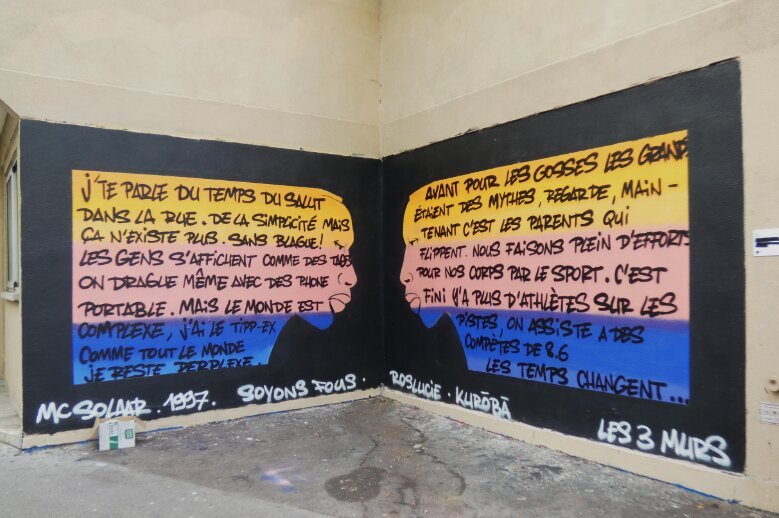 J'TE PARLE DU TEMPS DU SALUT
DANS LA RUE. DE LA SIMPLICITÉ MAIS
ÇA N'EXISTE PLUS. SANS BLAGUE!
LES GENS S'AFFICHENT COMME DES TAGS
ON DRAGUE MÊME AVEC DES PHONE
PORTABLE. MAIS LE MONDE EST
COMPLEXE, J'AI LE TIPP-EX
COMME TOUT LE MONDE
JE RESTE PERPLEXE.
MC SOLAAR. 1997. SOYONS FOUS.
AVANT POUR LES GOSSES LES GRANDS
ÉTAIENT DES MYTHES, REGARDE, MAIN-
TENANT C'EST LES PARENTS QUI
FLIPPENT. NOUS FAISONS PLEIN D'EFFORTS
POUR NOS CORPS PAR LE SPORT. C'EST
FINI Y'A PLUS D'ATHLÈTES SUR LES
PISTES, ON ASSISTE A DES
COMPÈTES DE 8.6
LES TEMPS CHANGENT...
ROSLUCIE. KURŌBĀ
LES 3 MURS